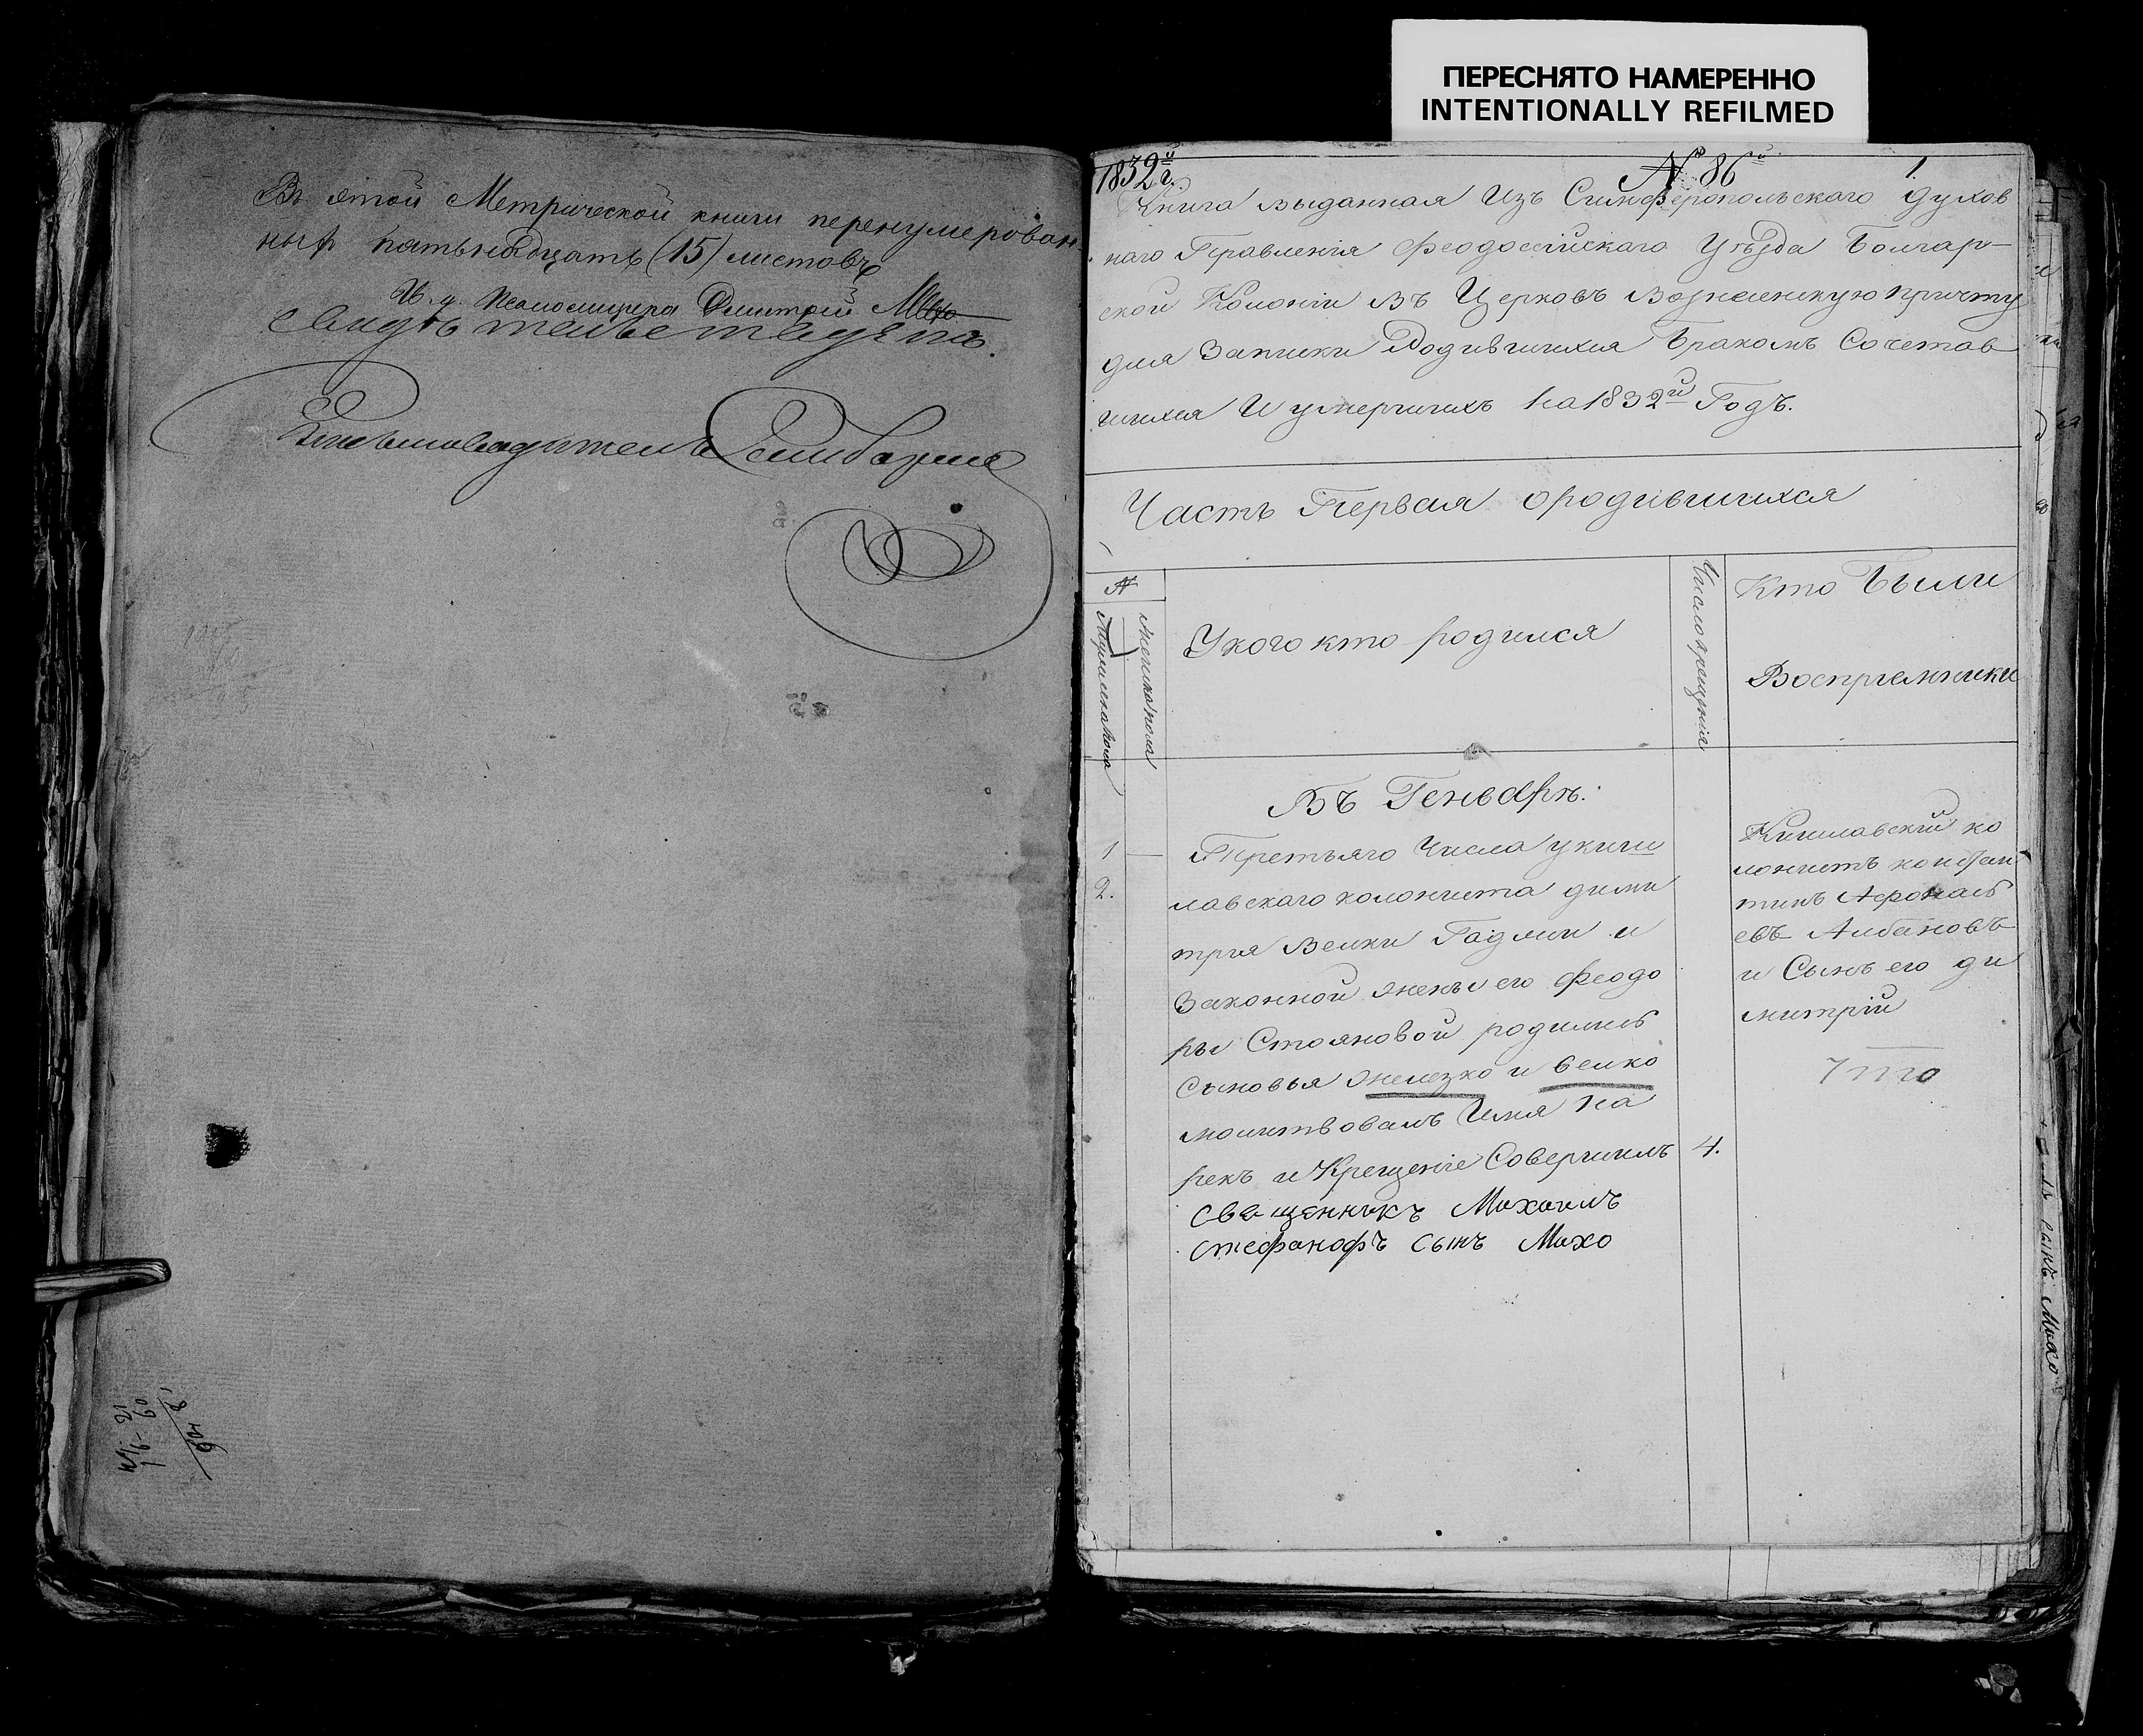 ПЕРЕСНЯТО НАМЕРЕННО
INTENTIONALLY REFILMED
Въ этой Метрической книги перенумерован
ныхъ пятьнадцать (15) листовъ
И. д. Псаломщика Дмитрій Михо
свидѣтельствуетъ
1832й г.
№ 86й
1
Книга выданная Изъ Симферопольскаго Духов
наго Правленія Феодосійскаго Уѣзда Болгар-
ской Колоніи Въ Церковъ Вознесенскую причту
для Записки Родившихся Бракомъ Сочетав
шихся И умершихъ На 1832й Годъ.
Часть Первая ородившихся
№
Мужеска пола
Женска пола
У кого кто родился
Число крещенія
Кто Были
Восприемники
Въ Генварѣ.
1 —
2.
Третьяго Числа у киши
лавскаго колониста дими
трия Велки Гаджи и
Законной жены его Феодо
ры Стояновой родились
Сыновья Железко и Велко
молитвовалъ Имя На
рекъ и Крещеніе Совершилъ
священникъ Михаилъ
стефанофъ сынъ Михо
4.
Кишлавский ко
лонистъ констан
тинъ Афонась
евъ Албановъ
и Сынъ его ди
митрій